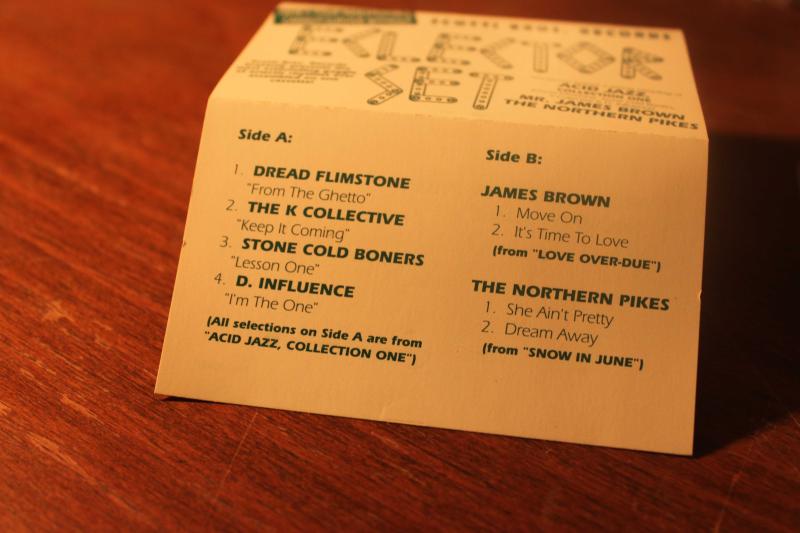 SCOTTI BROS. RECORDS
ECLECTOR
SET
ACID JAZZ
COLLECTION ONE
MR. JAMES BROWN
THE NORTHERN PIKES
Side A:
1. DREAD FLIMSTONE
"From The Ghetto"
2. THE K COLLECTIVE
"Keep It Coming"
3. STONE COLD BONERS
"Lesson One"
4. D. INFLUENCE
"I'm The One"
(All selections on Side A are from
"ACID JAZZ, COLLECTION ONE")
Side B:
JAMES BROWN
1. Move On
2. It's Time To Love
(from "LOVE OVER-DUE")
THE NORTHERN PIKES
1. She Ain't Pretty
2. Dream Away
(from "SNOW IN JUNE")